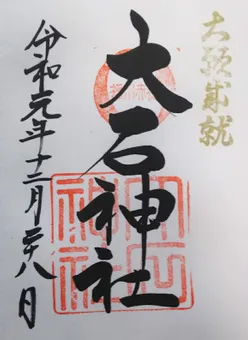 大願成就
大石神社
令和元年十二月廿八日